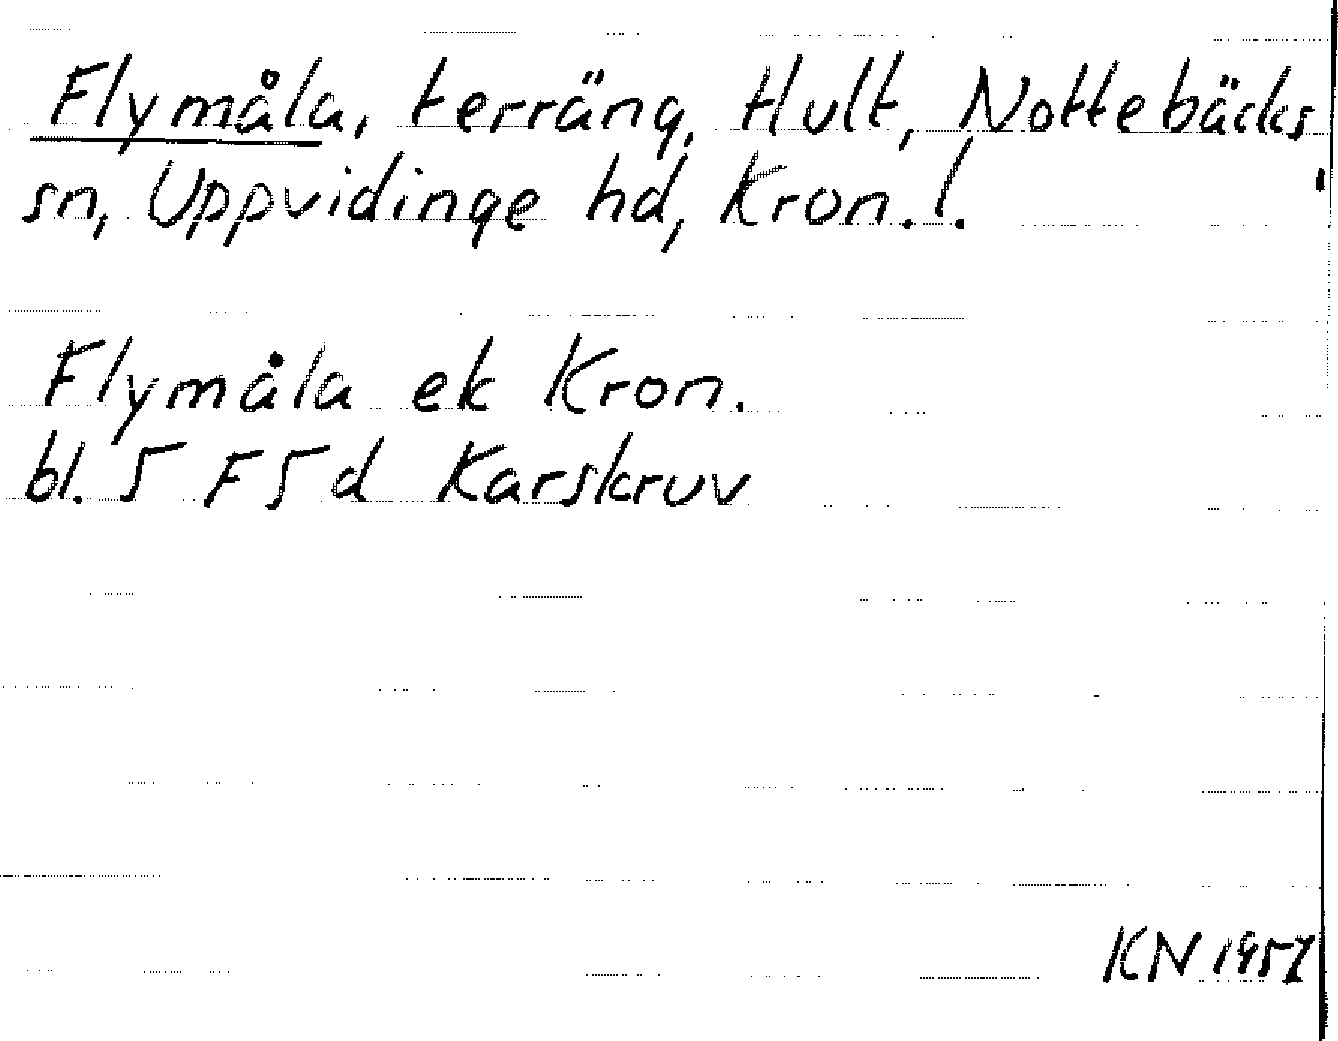 Flymåla, terräng, Hult, Nottebäcks
sn, Uppvidinge hd, Kron. l.
Flymåla ek Kron.
bl. 5 F 5 d Karskruv
KN 1957